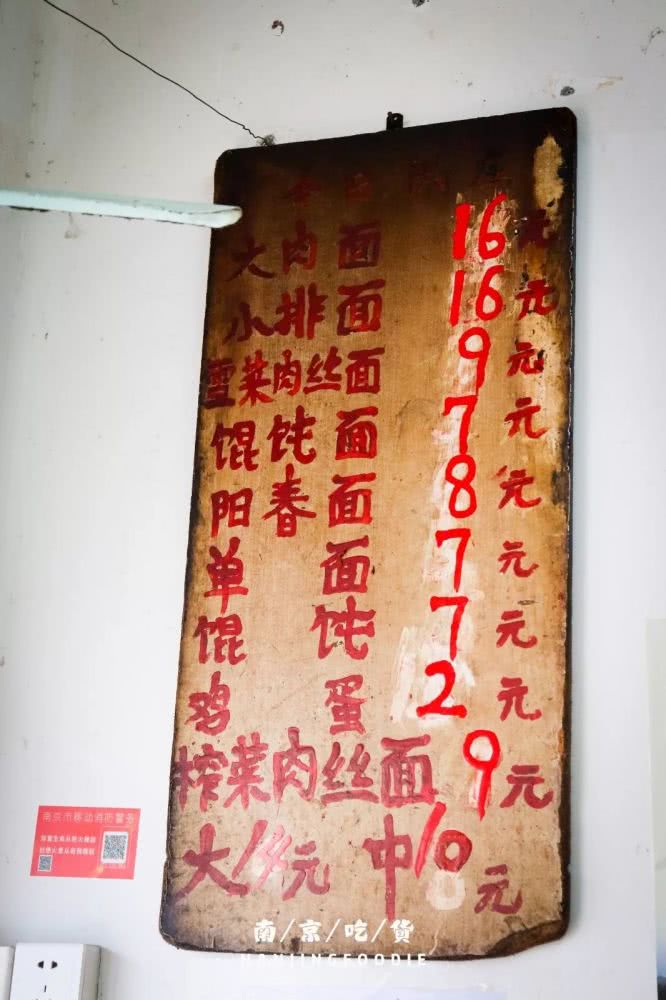 大肉面 16元
小排面 16元
雪菜肉丝面 9元
馄饨面 7元
阳春面 8元
单面 7元
馄饨 7元
鸡蛋 2元
榨菜肉丝面 9元
大14元 中10元
南京市移动消防警务
南/京/吃/貨
NANJINGFOODIE